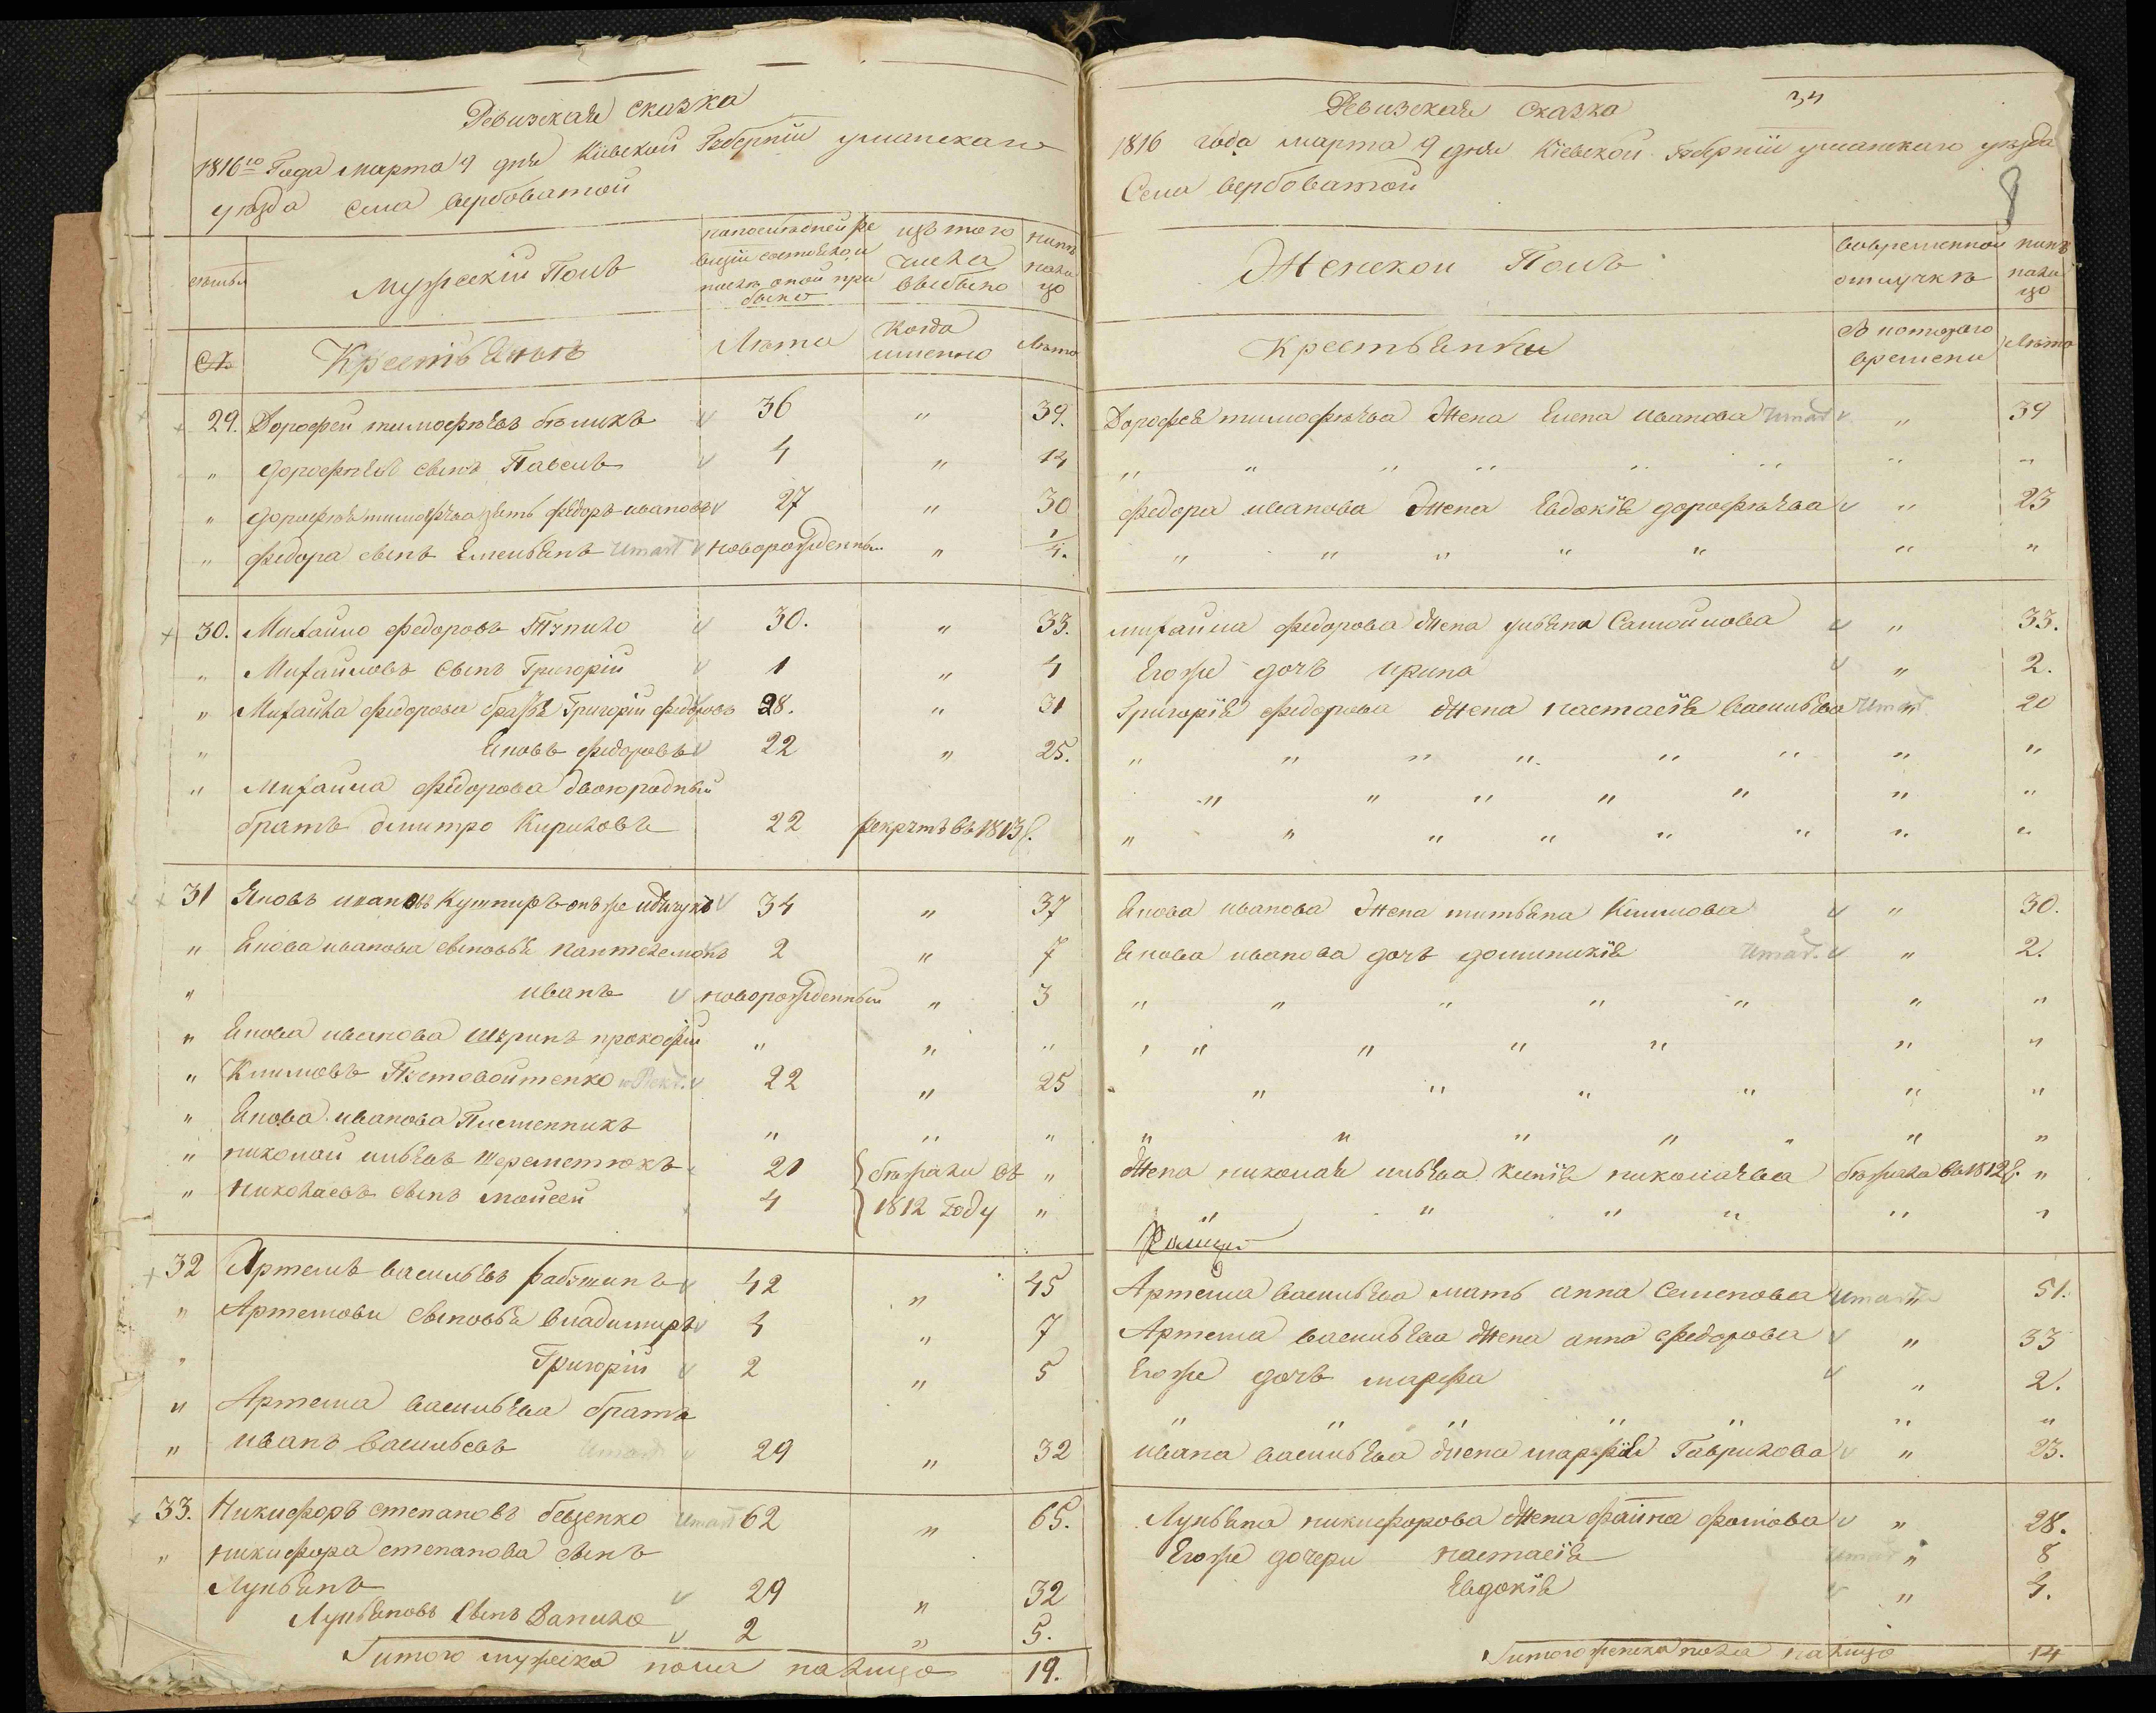 Ревизская сказка
1816го Года марта 9 дня Кіевской Губерніи уманскаго
уѣзда села вербоватой
мужескій Полъ
напослѣдней ре
визіи состояло и
послѣ оной при
было
изъ того
числа
выбыло
нынѣ
нали
цо
Крестьянъ
Лѣта
Когда
именно
Лѣта
29. Дорофей тимофѣевъ бѣликъ 36 " 39.
" дорофѣевъ сынъ Павелъ 4 " 14
" дорофѣя тимофѣева зять федоръ ивановъ 27 " 30
" федора сынъ Емельянъ Umarł новорожденный " 1/4.
30. Михайло федоровъ 30. " 33.
" Михайловъ сынъ Григорій 1 " 4
" Михайла федорова братья Григорій федоровъ 28. " 31
" Яковъ федоровъ 22 " 25.
" Михайла федорова двоюродный
братъ дмитро Кириловъ 22 рекрутъ въ 1813г.
31 Яковъ ивановъ Кушниръ онъ же 34 " 37
" Якова иванова сыновья пантелемонъ 2 " 7
" иванъ новорожденный " 3
" Якова иванова шуринъ прокофій " " "
" Климовъ Пустовойтенко 22 " 25
" Якова иванова Племенникъ " " "
" николай ильевъ Шереметюкъ 21 бѣжали въ "
" николаевъ сынъ моисей 4 1812 году "
32 Артемъ васильевъ рабушинъ 42 " 45
" Артемови сыновья владимиръ 4 " 7
" Григорій 2 " 5
" Артема васильева братъ
" иванъ васильевъ Umarł 29 " 32
33. Никифоръ степановъ бевзенко Umarł 62 " 65.
" никифора степанова сынъ
Лукьянъ 29 " 32
Лукьяновъ сынъ Данило 2 " 5.
Итого мужеска пола налицо 19.
Ревизская сказка
1816 года марта 9 дня Кіевской Губерніи уманскаго уѣзда
Села вербоватой
8
Женской Полъ
вовременной
отлучкѣ
нынѣ
нали
цо
Крестьянки
Съ котораго
времени
Лѣта
Дорофея тимофѣева Жена Елена иванова Umarł " 39
" " " " " " " "
федора иванова Жена Евдокія дорофѣева " 23
" " " " " " "
михайла федорова Жена ульяна Самойлова " 33.
Егоже дочь ирина " 2.
Григорія федорова Жена настасія васильева Umarł " 20
" " " " " " " "
" " " " " " "
" " " " " " " "
Якова иванова Жена татьяна Климова " 30.
Якова иванова дочь доминикія Umarł. " 2.
" " " " " " "
" " " " " " "
" " " " " " "
" " " " " " "
Жена николая ильева ксенія николаева бѣжала въ 1812г. "
" " " " " "
Артема васильева мать анна семенова Umarła " 51.
Артема васильева Жена анна федорова " 33
Егоже дочь марфа " 2.
" " " " " " "
ивана васильева Жена марфа Гаврилова " 23.
Лукьяна никифорова Жена фаина фомова " 28.
Егоже дочери настасія Umarł " 8
Евдокія " 4.
Итого женска пола налицо 14